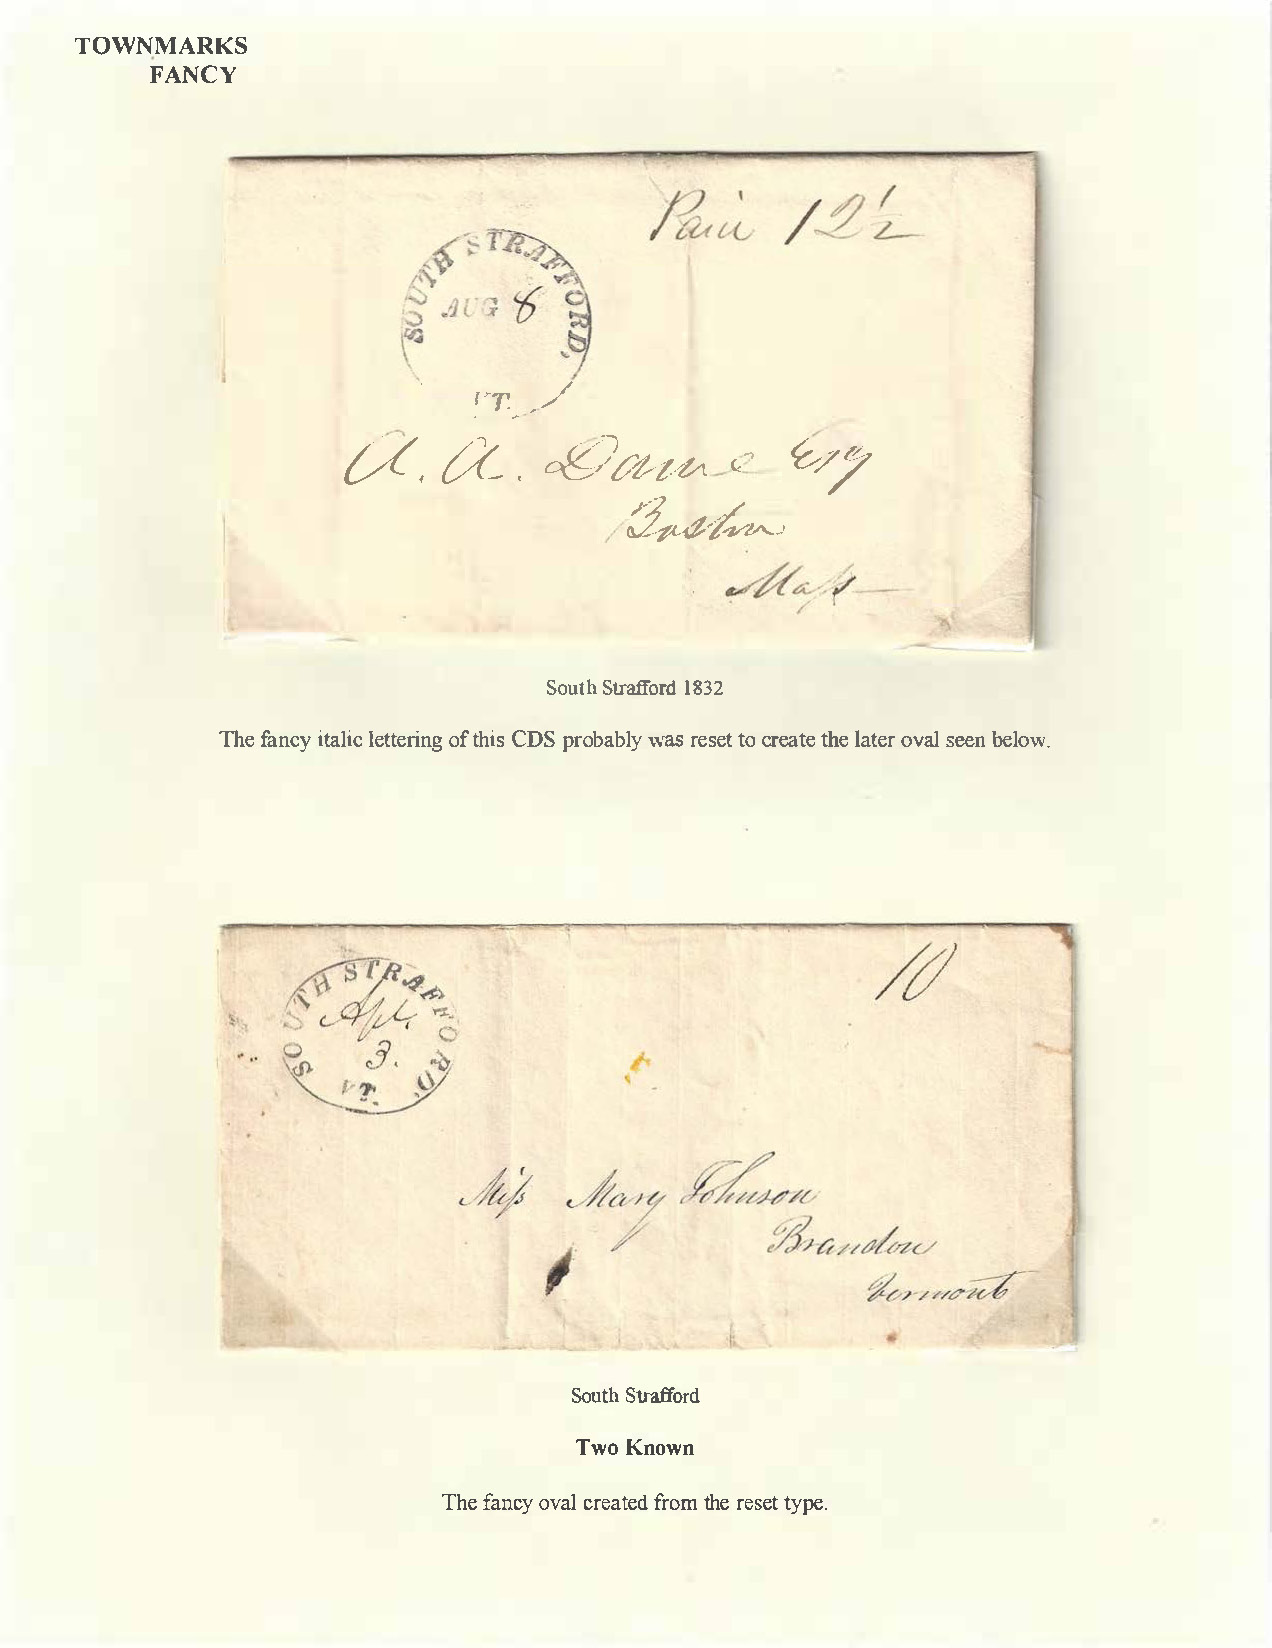 TOWNMARKS
FANCY
Paid 12½
SOUTH STRAFFORD,
AUG 8
VT.
A. A. Dame Esq
Boston
Mass
South Strafford 1832
The fancy italic lettering of this CDS probably was reset to create the later oval seen below.
10
SOUTH STRAFFORD,
Apl.
3.
VT.
Miss Mary Johnson
Brandon
Vermont
South Strafford
Two Known
The fancy oval created from the reset type.